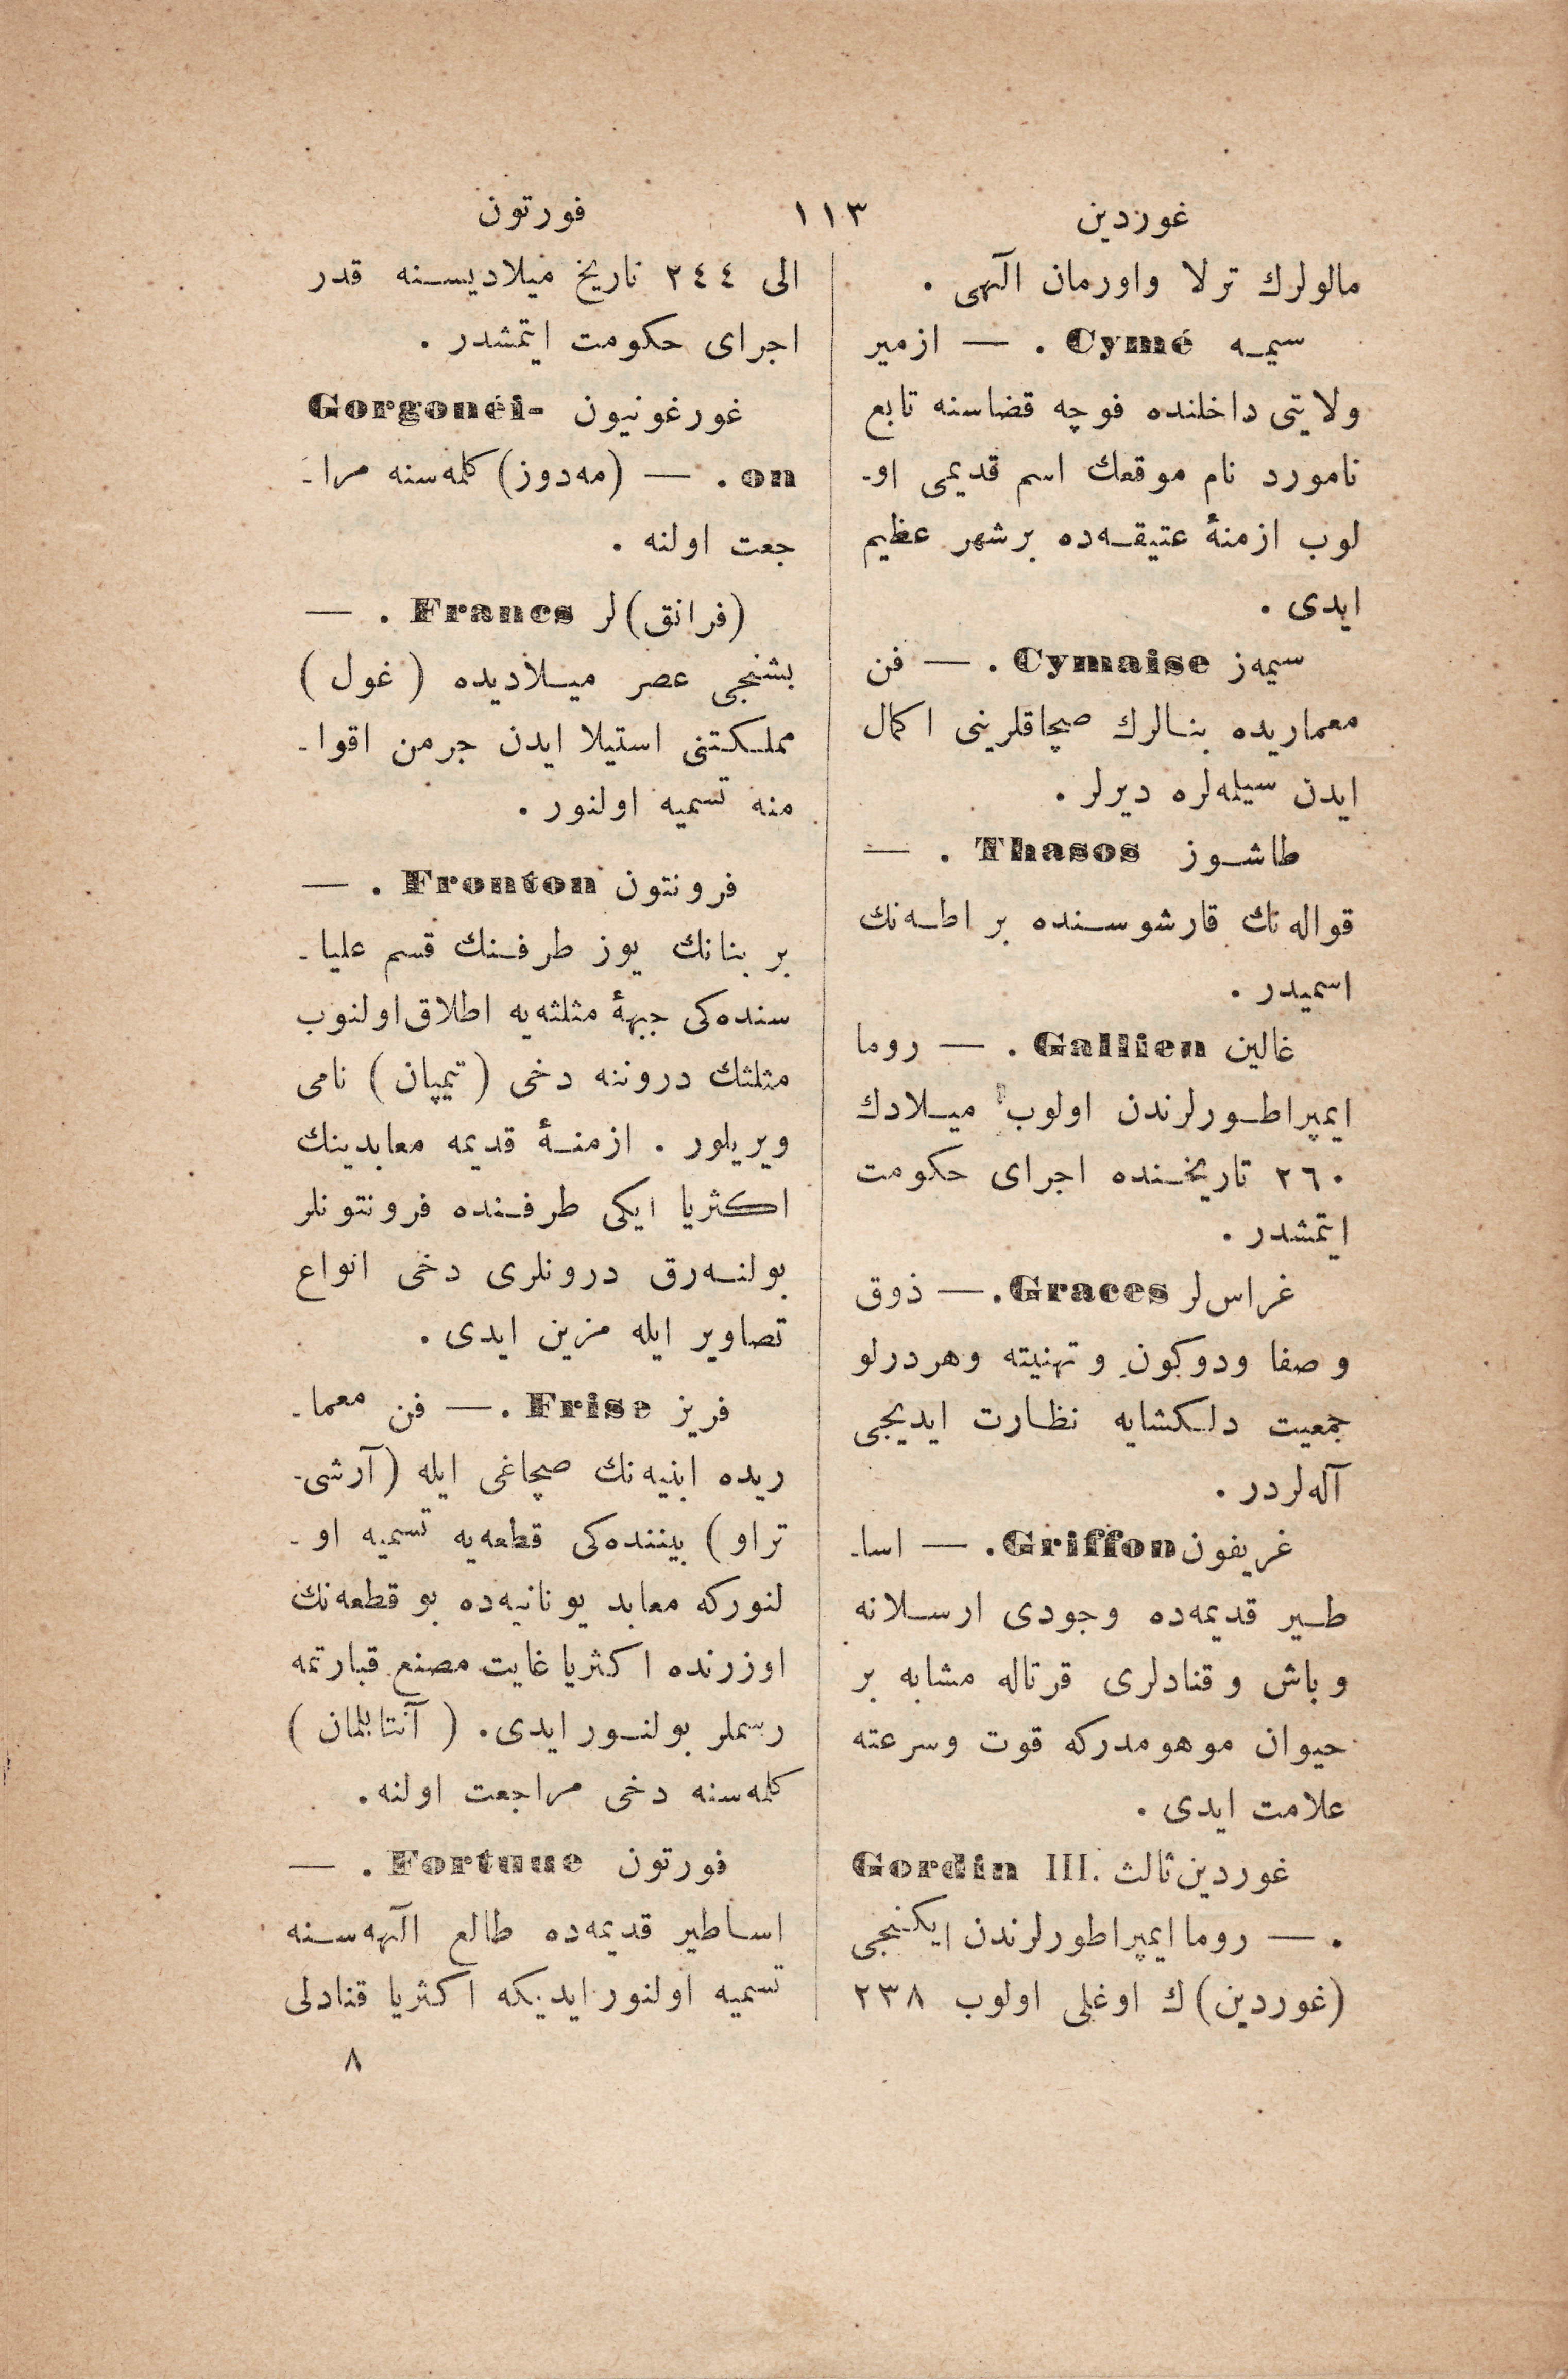 غوردين ١١٣ فورتون
مالولرك ترلا واورمان آلهى .
سيمه Cymé . — ازمير
ولايتى داخلنده فوچه قضاسنه تابع
نامورد نام موقعك اسم قديمى او-
لوب ازمنهٔ عتيقه‌ده برشهر عظيم
ايدى .
سيمه‌ز Cymaise . — فن
معماريده بنالرك صچاقلرينى اكمال
ايدن سيلمه‌لره ديرلر .
طاشوز Thasos . —
قواله‌نك قارشوسنده بر اطه‌نك
اسميدر .
غالين Gallien . — روما
ايمپراطورلرندن اولوب ميلادك
٢٦٠ تاريخنده اجراى حكومت
ايتمشدر .
غراس‌لر Graces . — ذوق
وصفا ودوكون وتهنيته وهردرلو
جمعيت دلكشايه نظارت ايديجى
آله‌لردر .
غريفون Griffon . — اسا-
طير قديمه‌ده وجودى ارسلانه
وباش وقنادلرى قرتاله مشابه بر
حيوان موهومدركه قوت وسرعته
علامت ايدى .
غوردين ثالث Gordin III.
. — روما ايمپراطورلرندن ايكنجى
(غوردين)ك اوغلى اولوب ٢٣٨
الى ٢٤٤ تاريخ ميلاديسنه قدر
اجراى حكومت ايتمشدر .
غورغونيون Gorgonéi-
on . — (مه‌دوز) كلمه‌سنه مرا-
جعت اولنه .
(فرانق)لر Francs . —
بشنجى عصر ميلاديده (غول)
مملكتنى استيلا ايدن جرمن اقوا-
منه تسميه اولنور .
فرونتون Fronton . —
بر بنانك يوز طرفنك قسم عليا-
سنده‌كى جبههٔ مثلثه‌يه اطلاق اولنوب
مثلثك دروننه دخى (تيمپان) نامى
ويريلور . ازمنهٔ قديمه معابدينك
اكثريا ايكى طرفنده فرونتونلر
بولنه‌رق درونلرى دخى انواع
تصاوير ايله مزين ايدى .
فريز Frise . — فن معما-
ريده ابنيه‌نك صچاغى ايله (آرشى-
تراو) بيننده‌كى قطعه‌يه تسميه او-
لنوركه معابد يونانيه‌ده بو قطعه‌نك
اوزرنده اكثريا غايت مصنع قبارتمه
رسملر بولنور ايدى . (آنتابلمان)
كلمه‌سنه دخى مراجعت اولنه .
فورتون Fortuue . —
اساطير قديمه‌ده طالع آلهه‌سنه
تسميه اولنور ايديكه اكثريا قنادلى
٨